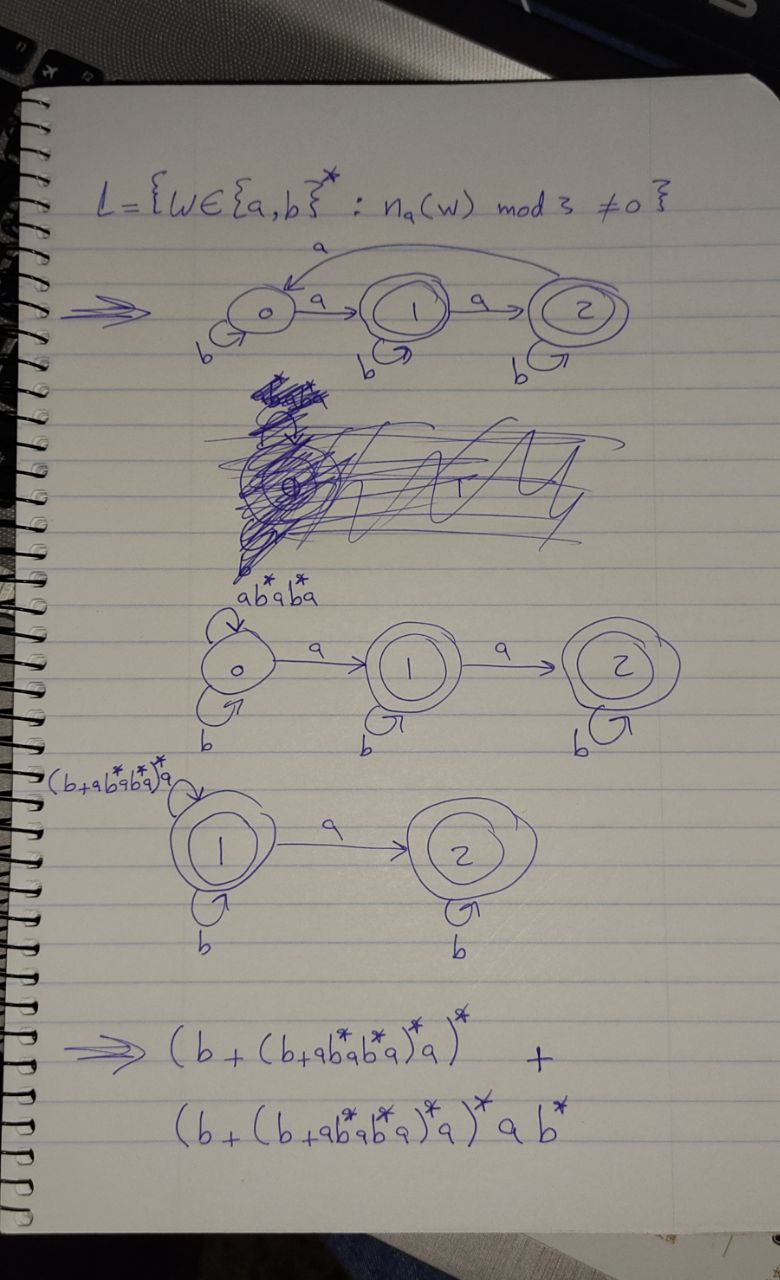 L = {w∈{a,b}* : nₐ(w) mod 3 ≠0}
a
⇒ 0 a 1 a 2
b b b
ab*ab*a
0 a 1 a 2
b b b
(b+ab*ab*a)*a
1 a 2
b b
⇒ (b + (b+ab*ab*a)*a)* +
(b + (b+ab*ab*a)*a)* a b*